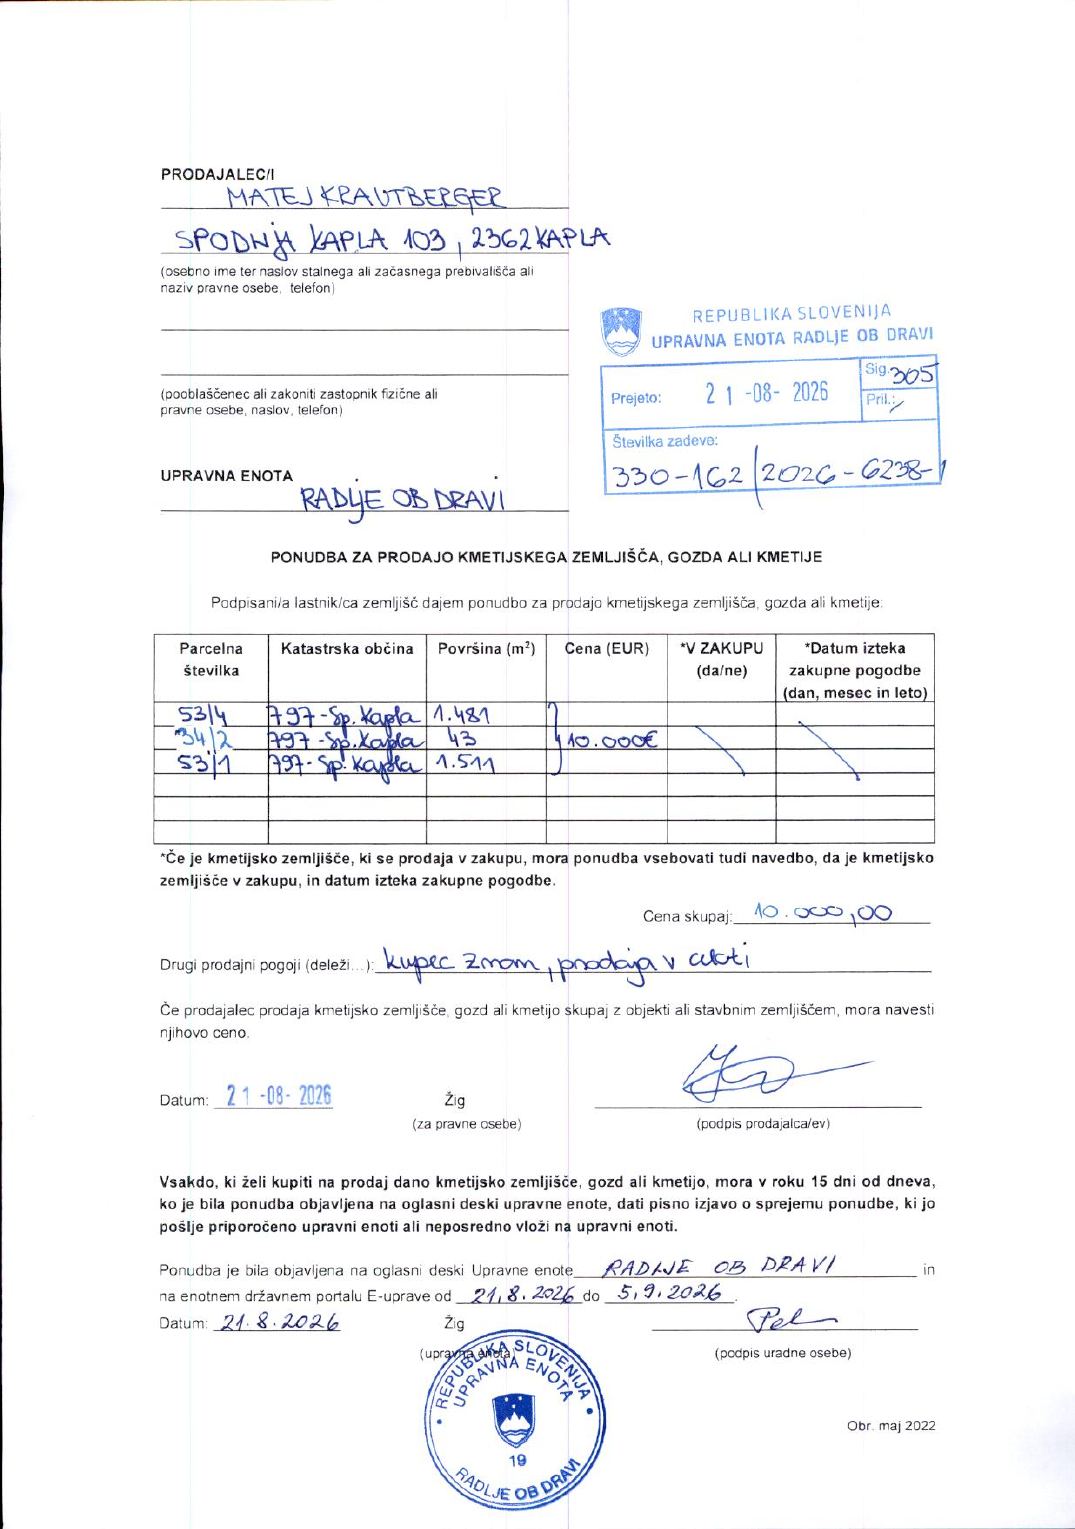 PRODAJALEC/I
MATEJ KRAUTBERGER
SPODNJA KAPLA 103, 2362 KAPLA
(osebno ime ter naslov stalnega ali začasnega prebivališča ali
naziv pravne osebe, telefon)
(pooblaščenec ali zakoniti zastopnik fizične ali
pravne osebe, naslov, telefon)
REPUBLIKA SLOVENIJA
UPRAVNA ENOTA RADLJE OB DRAVI
Prejeto: 21 -08- 2026
Sig. 305
Pril.: /
Številka zadeve:
330-162/2026-6238-1
UPRAVNA ENOTA
RADLJE OB DRAVI
PONUDBA ZA PRODAJO KMETIJSKEGA ZEMLJIŠČA, GOZDA ALI KMETIJE
Podpisani/a lastnik/ca zemljišč dajem ponudbo za prodajo kmetijskega zemljišča, gozda ali kmetije:
Parcelna številka Katastrska občina Površina (m²) Cena (EUR) *V ZAKUPU (da/ne) *Datum izteka zakupne pogodbe (dan, mesec in leto)
53/4 797-Sp. Kapla 1.481
34/2 797-Sp. Kapla 43 10.000€
53/1 797-Sp. Kapla 1.511
*Če je kmetijsko zemljišče, ki se prodaja v zakupu, mora ponudba vsebovati tudi navedbo, da je kmetijsko
zemljišče v zakupu, in datum izteka zakupne pogodbe.
Cena skupaj: 10.000,00
Drugi prodajni pogoji (deleži...): kupec znan, prodaja v celoti
Če prodajalec prodaja kmetijsko zemljišče, gozd ali kmetijo skupaj z objekti ali stavbnim zemljiščem, mora navesti
njihovo ceno.
Datum: 21 -08- 2026 Žig
(za pravne osebe) (podpis prodajalca/ev)
Vsakdo, ki želi kupiti na prodaj dano kmetijsko zemljišče, gozd ali kmetijo, mora v roku 15 dni od dneva,
ko je bila ponudba objavljena na oglasni deski upravne enote, dati pisno izjavo o sprejemu ponudbe, ki jo
pošlje priporočeno upravni enoti ali neposredno vloži na upravni enoti.
Ponudba je bila objavljena na oglasni deski Upravne enote RADLJE OB DRAVI in
na enotnem državnem portalu E-uprave od 21.8.2026 do 5.9.2026.
Datum: 21.8.2026 Žig
(upravna enota) (podpis uradne osebe)
REPUBLIKA SLOVENIJA
UPRAVNA ENOTA
19
RADLJE OB DRAVI
Obr. maj 2022